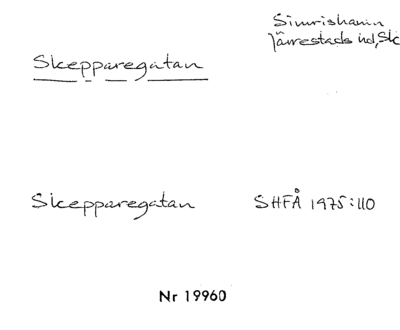 Simrishamn
Järrestads hd, Sk
Skepparegatan
Skepparegatan SHFÅ 1975:110
Nr 19960